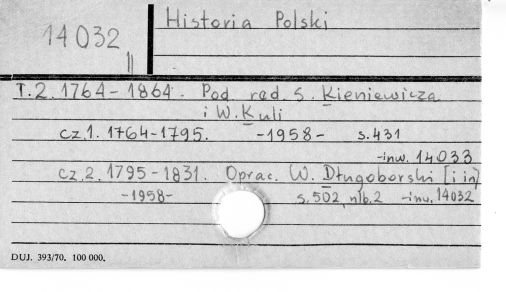 Historia Polski
14032
T.2. 1764-1864. Pod red. S. Kieniewicza
i W. Kuli
cz.1. 1764-1795. -1958- s.431
-inw. 14033
cz.2. 1795-1831. Oprac. W. Długoborski [i in]
-1958- s.502, nlb.2 -inw. 14032
DUJ. 393/70. 100 000.